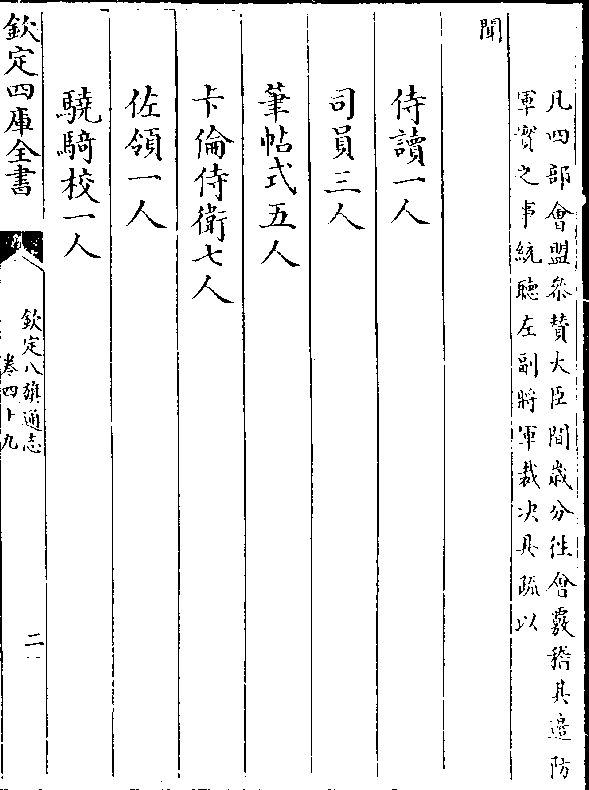 凡四部會盟叅贊大臣間歲分徃會覈稽其邊防
軍實之事統聽左副將軍裁决具疏以
聞
侍讀一人
司員三人
筆帖式五人
卡倫侍衛七人
佐領一人
驍騎校一人
欽定四庫全書
欽定八旗通志
卷四十九
二